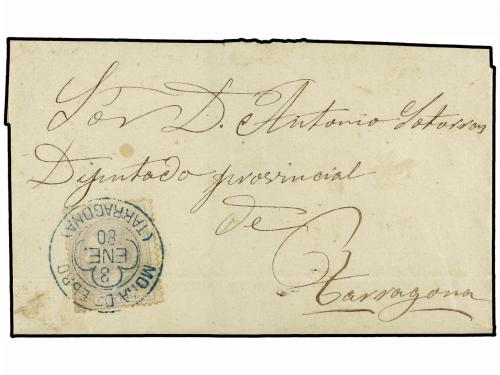 Sor D. Antonio Satorras
Diputado provincial
de
Tarragona
MORA DE EBRO
(TARRAGONA)
8
ENE.
80